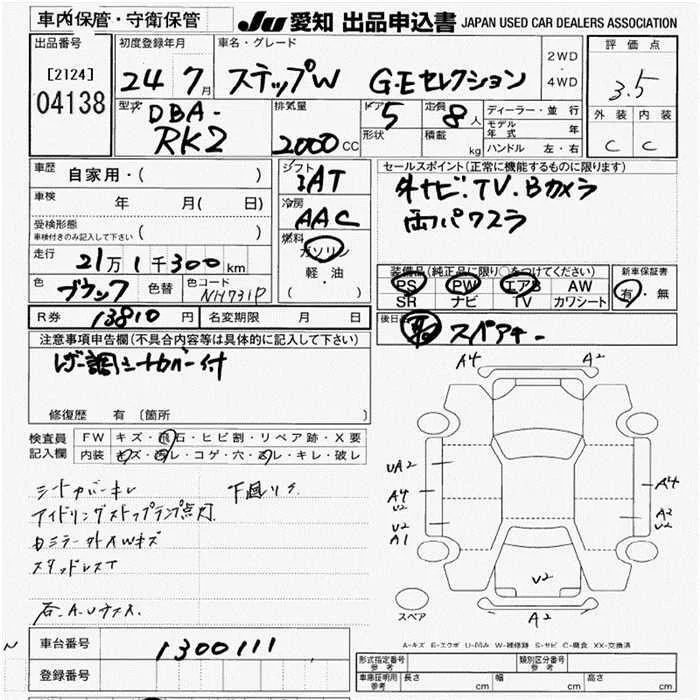 車内保管・守衛保管
JU 愛知 出品申込書 JAPAN USED CAR DEALERS ASSOCIATION
出品番号 初度登録年月 車名・グレード 2WD・4WD 評価点
[2124] 24 7月 ステップW G・Eセレクション 3.5
04138
型式 DBA-RK2 排気量 2000cc ドア 5 定員 8人 ディーラー・並行 外装 内装
形状 積載 kg モデル年式 年 C C
ハンドル 左・右
車歴 自家用・( ) シフト IAT セールスポイント(正常に機能するものに限ります)
車検 年 月( 日) 冷房 AAC 外ナビ.TV.Bカメラ
受検形態 ( ) 両パワスラ
車検付きのみ記入して下さい
燃料 ガソリン 軽・油 ( )
走行 21万1千300km 装備品(純正品に限り○をつけてください) 新車保証書
色 ブラック 色替 色コード NH731P PS PW エアB AW 有・無
SR ナビ TV カワシート
R券 13810円 名変期限 月 日 後日品 スペアキー
注意事項申告欄(不具合内容等は具体的に記入して下さい)
レザー調シートカバー付
修復歴 有 〔箇所 〕
検査員記入欄 FW キズ・飛石・ヒビ割・リペア跡・X要
内装 キズ・汚レ・コゲ・穴・スレ・キレ・破レ
シートカバーキレ 下廻りサビ
アイドリングストップランプ点灯
カミラー外人Wキズ
スタッドレスT
A4 A2
UA2
A4 U2
U2 A1
A4
A2 U2
U2
A2
スペア
A-キズ E-エクボ U-凹み W-補修跡 S-サビ C-腐食 XX-交換済
車台番号 1300111
登録番号
形式指定番号 参考 類別区分番号 参考
車庫証明用 参考 長さ cm 幅 cm 高さ cm